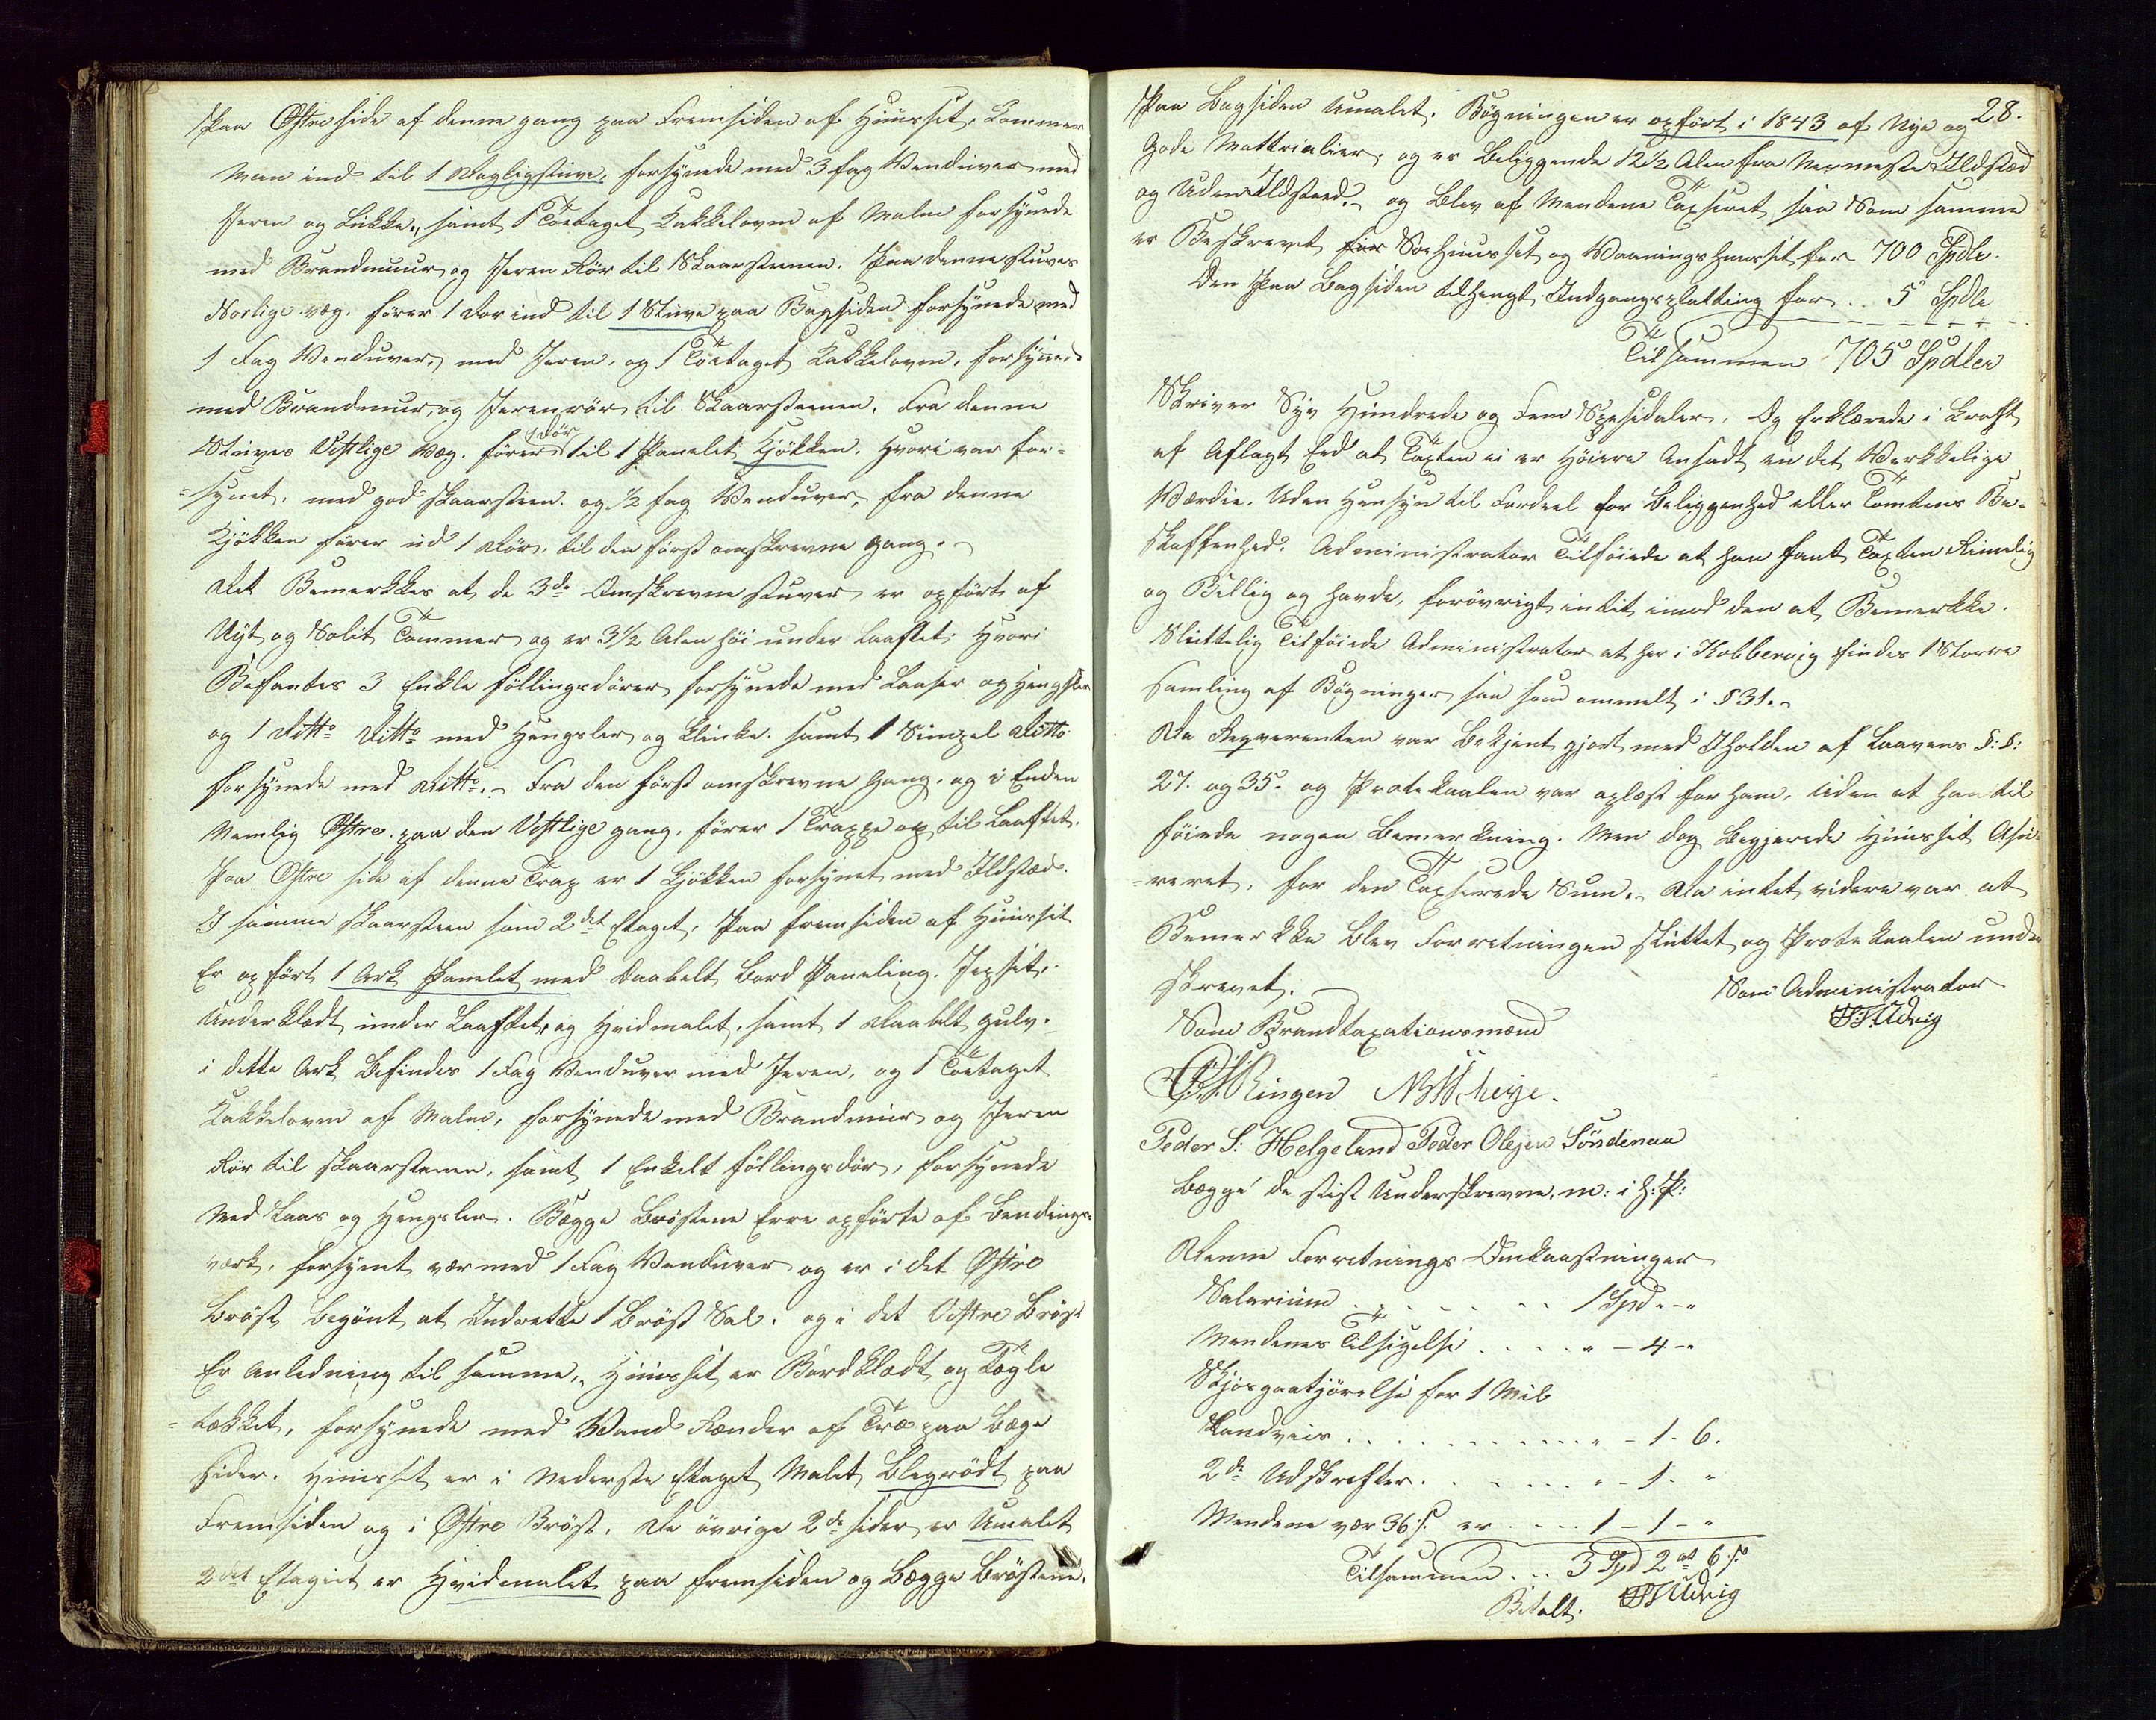 Paa Østre side af denne gang paa Fremsiden af Huusset, Kommer
Man ind til 1 Dagligstuve, forsynede med 3 fag Vinduver med
Jeren og Lukke, samt 1 Toetaget Kakkelovn af Malm forsynede
med Brandmuur og Jeren Rör til Skaarstenen. Paa denne stuves
Norlige væg, förer 1 Dor ind til 1 Stuve paa Bagsiden forsynede med
1 Fag Venduver, med Jeren, og 1 Toetaget Kakkelovn, forsynede
med Brandmur, og Jerenrör til Skaarstenen. Fra denne
Stuves Vestlige væg. förer 1 dör til 1 Panelet Kjökken. Hvori var for-
=synet, med god skaarsteen og ½ fag Venduver, fra denne
Kjökken förer ud 1 Dör, til den först omskrevne gang.
Det Bemerkkes at de 3de Omskrevne stuver er opfört af
Nyt og Solit Tommer og er 3½ Alen höi under Laaftet. Hvori
Befantes 3 Enkle föllingsdörer forsynede med Laaser og Hengsler
og 1 Ditto Ditto med Hengsler og Klinke. samt 1 Simpel Ditto
forsynede med Ditto. Fra den först omskrevne Gang, og i Enden
Nemlig Østre paa den Vestlige gang, förer 1 Trappe op til Laaftet.
Paa Østre side af denne Trap er 1 Kjökken forsynet med Ildsted.
I samme skaarsteen som 2det Etaget. Paa fremsiden af Huusset
Er opfört 1 Ark Panelet med Daabelt Bord Paneling. Jepset,
Underklædt under Laaftet, og Hvidmalet, samt 1 Daabelt gulv.
i dette Ark Befindes 1 Fag Venduver med Jeren, og 1 Toetaget
Kakkelovn af Malm, forsynede med Brandmur og Jeren
Rör til skaarstenen, samt 1 Enkelt föllingsdör, forsynede
Med Laas og Hengsler. Begge Bröstene Erre opförte af Bendings-
værk, forsynet vær med 1 Fag Venduver og er i det Østre
Bröst begönt at Indrette 1 Bröst Sal. og i det Vestre Bröst
Er Anledning til samme, Huusset er Bordklædt og Tegle
=tekket, forsynede med Vand Render af Træ paa Bege
sider. Huusset er i Nederste Etaget Malet Blegrödt paa
Fremsiden og i Østre Bröst. De övrige 2de sider er Umalet
2det Etaget er Hvidmalet paa fremsiden og Begge Bröstene.
28.
Paa Bagsiden Umalet. Bögningen er opfört i 1843 af Nye og
Gode Mattrialier, og er Beliggende 12½ Alen fra Nermeste Ildsted
og Uden Ildsted. og Blev af Mendene Taxseret saa Som samme
er Beskrevet for Soehuusset og Vaaningshuusset for 700 Spdlr.
Den Paa Bagsiden tilhengt Indgangsplatting for .. 5 Spdlr
Tilsammen 705 Spdler
Skriver Syv Hundrede og Fem Spesidaler. Og Erklærede i Kraft
af Aflagt Eed at Taxten ei er Höiere Ansadt en det Verkkelige
Verdie. Uden Hensyn til Fordeel for Beliggenhed eller Tomtens Be-
skaffenhed. Administrator Tilföiede at han fant Taxten Rimelig
og Billig og havde, foröverigt intet imod den at Bemerkke.
Sluttelig Tilföiede Administrator at her i Kobbervig findes 1 Storre
Samling af Bögninger saa som ommelt i § 31.
Da Reqverenten var Bekjent gjort med Iholden af Laavens §:§:
27. og 35. og Protekaalen var oplæst for ham, uden at han til
föiede nogen Bemerkning. Men dog Begjerede Huusset Asu-
=reret, for den Taxserede Sum. Da intet videre var at
Bemerkke Blev Forretningen sluttet og Protekaalen under
skrevet.
Som Administrator
Udvig
Som Brandtaxationsmænd
Ringen N B Meije.
Peder S: Helgeland Peder Olsen Söndenaa
Begge de sist Underskrevne, m: i H: P:
Denne Forretnings Omkaastninger
Salarium . . . . . . . 1 Spd - „
Mendenes Tilsigelse . . . . „ - 4 - „
Skjösgaatjörelse for 1 Mil
Landveis . . . . . . . . . . „ - 1 - 6.
2de Udskrefter . . . . . . „ - 1 - „
Mendene vær 36 s. er . . . . 1 - 1 - „
Tilsammen . . 3 Spd 2 ort 6 s.
Betalt. Udvig